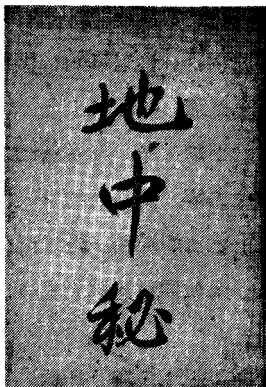 地中秘